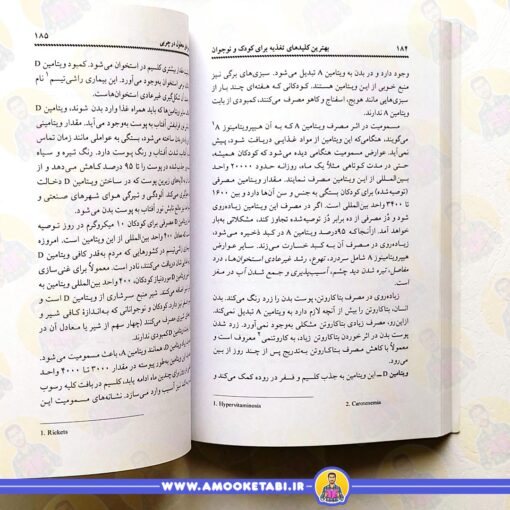 ۱۸۴ بهترین کلیدهای تغذیه برای کودک و نوجوان
وجود دارد و در بدن به ویتامین A تبدیل می‌شود. سبزی‌های برگی نیز
منبع خوبی از این ویتامین هستند. کودکانی که هفته‌ای چند بار از
سبزی‌هایی مانند هویج، اسفناج و کاهو مصرف می‌کنند، کمبودی از بابت
ویتامین A ندارند.
مسمومیت در اثر مصرف ویتامین A که به آن هیپرویتامینوز A¹
می‌گویند، هنگامی که این ویتامین از مواد غذایی دریافت شود، پیش
نمی‌آید. عوارض مسمومیت هنگامی دیده می‌شود که کودکان همیشه،
حتی در مدت کوتاهی مثلاً یک ماه، روزانه حدود ۲۰۰۰۰ واحد
بین‌المللی از این ویتامین مصرف نمایند. مقدار ویتامین مصرفی
(توصیه‌شده) برای کودکان بستگی به جنس و سن آن‌ها دارد و بین ۱۶۰۰
تا ۳۴۰۰ واحد بین‌المللی است. اگر در مصرف این ویتامین زیاده‌روی
شود و دُز مصرفی از ده برابر دُز توصیه‌شده تجاوز کند، مشکلاتی به‌بار
خواهد آمد. ازآنجاکه ۹۵درصد ویتامین A در کبد ذخیره می‌شود،
زیاده‌روی در مصرف آن به کبد خسارت می‌زند. سایر عوارض
هیپرویتامینوز A شامل سردرد، تهوع، رشد غیرعادی استخوان‌ها، درد
مفاصل، تیره شدن دید چشم، آسیب‌پذیری و جمع شدن آب در مغز
است.
زیاده‌روی در مصرف بتاکاروتن، پوست را زرد رنگ می‌کند. بدن
انسان، بتاکاروتن را بیش از آنچه لازم دارد به ویتامین A تبدیل نمی‌کند.
ازاین‌رو، مصرف زیادی بتاکاروتن مشکلی به‌وجود نمی‌آورد. زرد شدن
پوست بدن در اثر خوردن بتاکاروتن زیاد، به کاروتنمی² معروف است و
معمولاً با کاهش مصرف بتاکاروتن به‌تدریج پس از چند روز از بین
می‌رود.
ویتامین D ــ این ویتامین به جذب کلسیم و فسفر در روده کمک می‌کند و
1. Hypervitaminosia 2. Carotenemia
۱۸۵
مقدار بیشتری کلسیم در استخوان می‌شود. کمبود ویتامین D
نرمی استخوان به‌وجود می‌آورد. این بیماری راشی‌تیسم¹ نام
شکل‌گیری غیرعادی استخوان‌هاست.
ویتامین‌ها که باید همراه غذا وارد بدن شوند، ویتامین D
آفتاب به پوست به‌وجود می‌آید. مقدار ویتامینی
بدن ساخته می‌شود، بستگی به عواملی مانند زمان تماس
شدت آفتاب و رنگ پوست دارد. رنگ تیره و سیاه
را تا ۹۵ درصد کاهش می‌دهد و از
زیرین پوست که در ساختن ویتامین D دخالت
آلودگی و تیرگی هوای شهرهای صنعتی و
مانع تابش نور آفتاب به پوست بدن می‌شود.
D مصرفی برای کودکان ۱۰ میکروگرم در روز توصیه
معادل ۴۰۰ واحد بین‌المللی از این ویتامین است. امروزه
راشی‌تیسم در کشورهایی که مردم به‌قدر کافی ویتامین
دریافت می‌کنند، نادر است. معمولاً برای غنی‌سازی
موردنیاز کودکان، ۴۰۰ واحد بین‌المللی ویتامین به
می‌کنند. شیر منبع سرشاری از ویتامین D است و
دارد. کودکان و نوجوانانی که به‌اندازهٔ کافی شیر و
مصرف می‌کنند (چهار سهم از شیر یا معادل آن در
ویتامین D کمبودی ندارند.
D همانند ویتامین A، باعث مسمومیت می‌شود.
ویتامین به‌طور پیوسته در مقدار ۳۰۰۰ تا ۴۰۰۰ واحد
برای چندین ماه ادامه یابد، کلسیم در بافت کلیه رسوب
نیز آسیب وارد می‌سازد. نشانه‌های مسمومیت این
1. Rickets
WWW.AMOOKETABI.IR